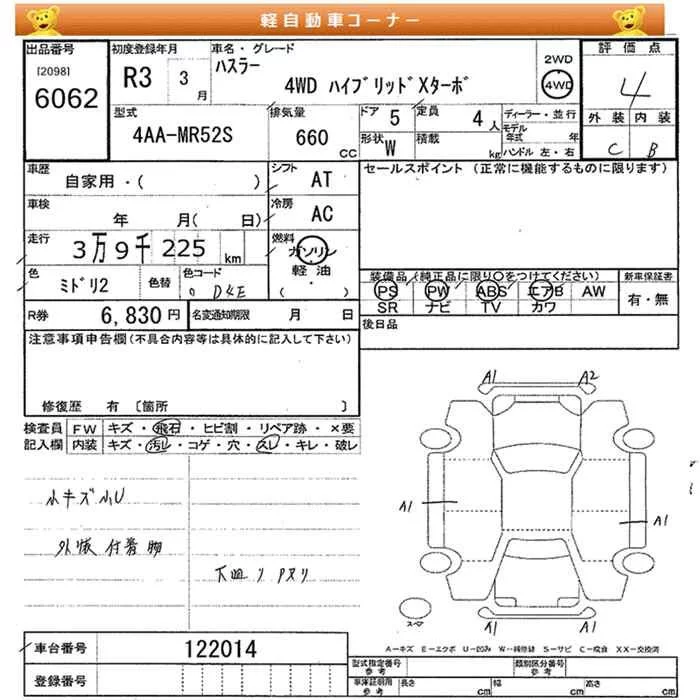 軽自動車コーナー
出品番号
[2098]
6062
初度登録年月
R3 3月
車名・グレード
ハスラー
4WD ハイブリッドXターボ
2WD
4WD
評価点
4
外装 内装
C B
型式
4AA-MR52S
排気量
660 CC
ドア 5
定員 4人
形状 W
積載 kg
ディーラー・並行
モデル年式 年
ハンドル 左・右
車歴
自家用・( )
シフト AT
セールスポイント (正常に機能するものに限ります)
車検
年 月( 日)
冷房 AC
走行
3万9千225 km
燃料
ガソリン
軽油
( )
色
ミドリ2
色替
色コード
D4E
装備品(純正品に限り○をつけてください)
PS PW ABS エアB AW
SR ナビ TV カワ
新車保証書
有・無
R券 6,830円
名変通知期限 月 日
後日品
注意事項申告欄(不具合内容等は具体的に記入して下さい)
修復歴 有 〔箇所 〕
検査員記入欄
FW キズ・飛石・ヒビ割・リペア跡・×要
内装 キズ・汚レ・コゲ・穴・スレ・キレ・破レ
小キズ小U
A1 A2
A1
A1
A1 A1
A-キズ E-エクボ U-凹み W-補修跡 S-サビ C-腐食 XX-交換済
車台番号 122014
登録番号
型式指定番号 参考
類別区分番号 参考
車庫証明用 参考
長さ cm
幅 cm
高さ cm